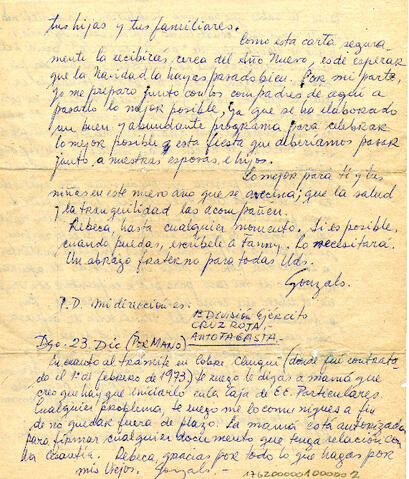 tus hijas y tus familiares.
Como esta carta segura-
mente la recibirás cerca del Año Nuevo, es de esperar
que la Navidad la hayas pasado bien. Por mi parte,
yo me preparo junto con los compadres de aquí a
pasarlo lo mejor posible, ya que se ha elaborado
un buen y abundante programa para celebrar
lo mejor posible esta fiesta que deberíamos pasar
junto a nuestras esposas e hijos.
Lo mejor para ti y tus
niñas en este nuevo año que se avecina; que la salud
y la tranquilidad las acompañen.
Rebeca, hasta cualquier momento. Si es posible,
cuando puedas, escríbele a Fanny. Lo necesitará.
Un abrazo fraterno para todas Uds.
Gonzalo.
P.D. Mi dirección es:
1ª DIVISIÓN EJÉRCITO
CRUZ ROJA.-
ANTOFAGASTA.-
Dgo. 23. Dic (POR MANO)
En cuanto al trámite en Cobre Chuqui (donde fui contrata-
do el 1º de febrero de 1973) te ruego le digas a mamá que
creo que hay que iniciarlo en la Caja de EE. Particulares.
Cualquier problema, te ruego me lo comuniques a fin
de no quedar fuera de plazo. La mamá está autorizada
para firmar cualquier documento que tenga relación con
Rebeca, gracias por todo lo que hagas por
mis viejos. Gonzalo.-
176200001000002